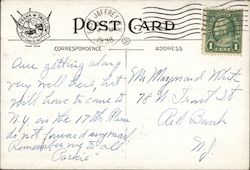 POST CARD
JAFFREY
1938
CORRESPONDENCE
ADDRESS
1 CENT 1
Are getting along
very well here, but
will have to come to
N.Y. on the 17th
do not forward any mail
Remember me to all
Mr Maynard White
78 W Front St
Red Bank
NJ